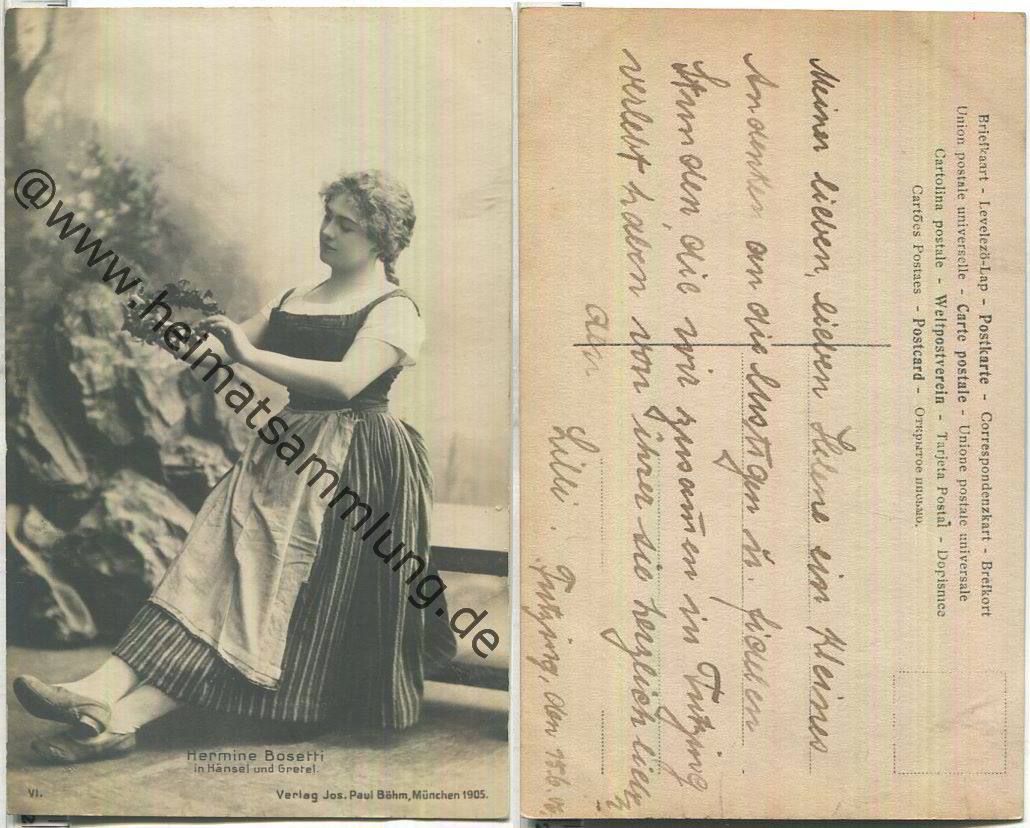 @www.heimatsammlung.de
Hermine Bosetti
in Hänsel und Gretel.
VI.
Verlag Jos. Paul Böhm, München 1905.
Briefkaart - Levelezö-Lap - Postkarte - Correspondenzkart - Brefkort
Union postale universelle - Carte postale - Unione postale universale
Cartolina postale - Weltpostverein - Tarjeta Postal - Dopisnice
Cartões Postaes - Postcard - Открытое письмо.
Meiner lieben, lieben Helene ein kleines
Andenken an die lustigen u. fidelen
Stunden, die wir zusam̄en in Tutzing
verlebt haben von ihrer sie herzlich lieb
Lilli.
Tutzing, den 15.6.